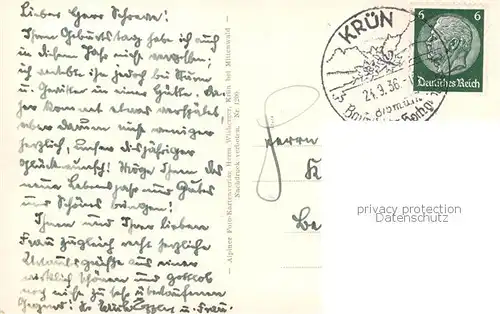 Lieber Herr Schramm!
Ihren Geburtstag habe ich auch
in diesem Jahr nicht vergessen;
ich verlebte ihn jedoch bei Sturm
und Gewitter in einer Hütte. Da-
her kommt etwas verspätet,
aber darum nicht weniger
herzlich, unser diesjähriger
Glückwunsch! Möge Ihnen das
neue Lebensjahr nur Gutes
und Schönes bringen!
Ihnen und Ihrer lieben
Frau zugleich recht herzliche
Urlaubsgrüße aus einer
wirklich schönen und gottlob
noch nicht zu sehr überlaufenen
Gegend! Ihr u. Frau.
— Alpiner Foto-Kartenverlag, Herm. Krün bei Mittenwald —
Nachdruck verboten. Nr.
KRÜN
24.9.36
6 6
Deutsches Reich
Herrn
K
Be
privacy protection
Datenschutz